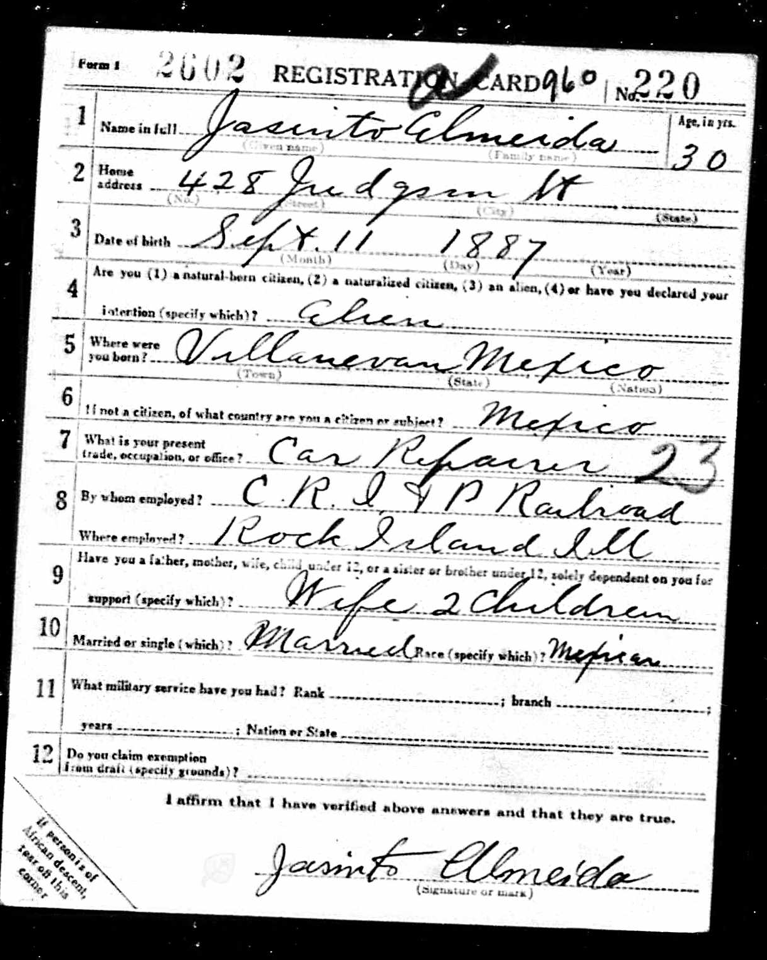 Form 1 2602 REGISTRATION CARD 960 No. 220
1 Name in full Jasinto Almeida Age, in yrs.
(Given name) (Family name) 30
2 Home address 428 Judgson St
(No.) (Street) (City) (State)
3 Date of birth Sept. 11 1887
(Month) (Day) (Year)
4 Are you (1) a natural-born citizen, (2) a naturalized citizen, (3) an alien, (4) or have you declared your
intention (specify which)? Alien
5 Where were you born? Villanevan Mexico
(Town) (State) (Nation)
6 If not a citizen, of what country are you a citizen or subject? Mexico
7 What is your present
trade, occupation, or office? Car Repairer 23
8 By whom employed? C. R. I. & P Railroad
Where employed? Rock Island Ill
9 Have you a father, mother, wife, child under 12, or a sister or brother under 12, solely dependent on you for
support (specify which)? Wife 2 Children
10 Married or single (which)? Married Race (specify which)? Mexican
11 What military service have you had? Rank ; branch ;
years ; Nation or State
12 Do you claim exemption
from draft (specify grounds)?
I affirm that I have verified above answers and that they are true.
If person is of
African descent,
tear off this
corner
Jasinto Almeida
(Signature or mark)